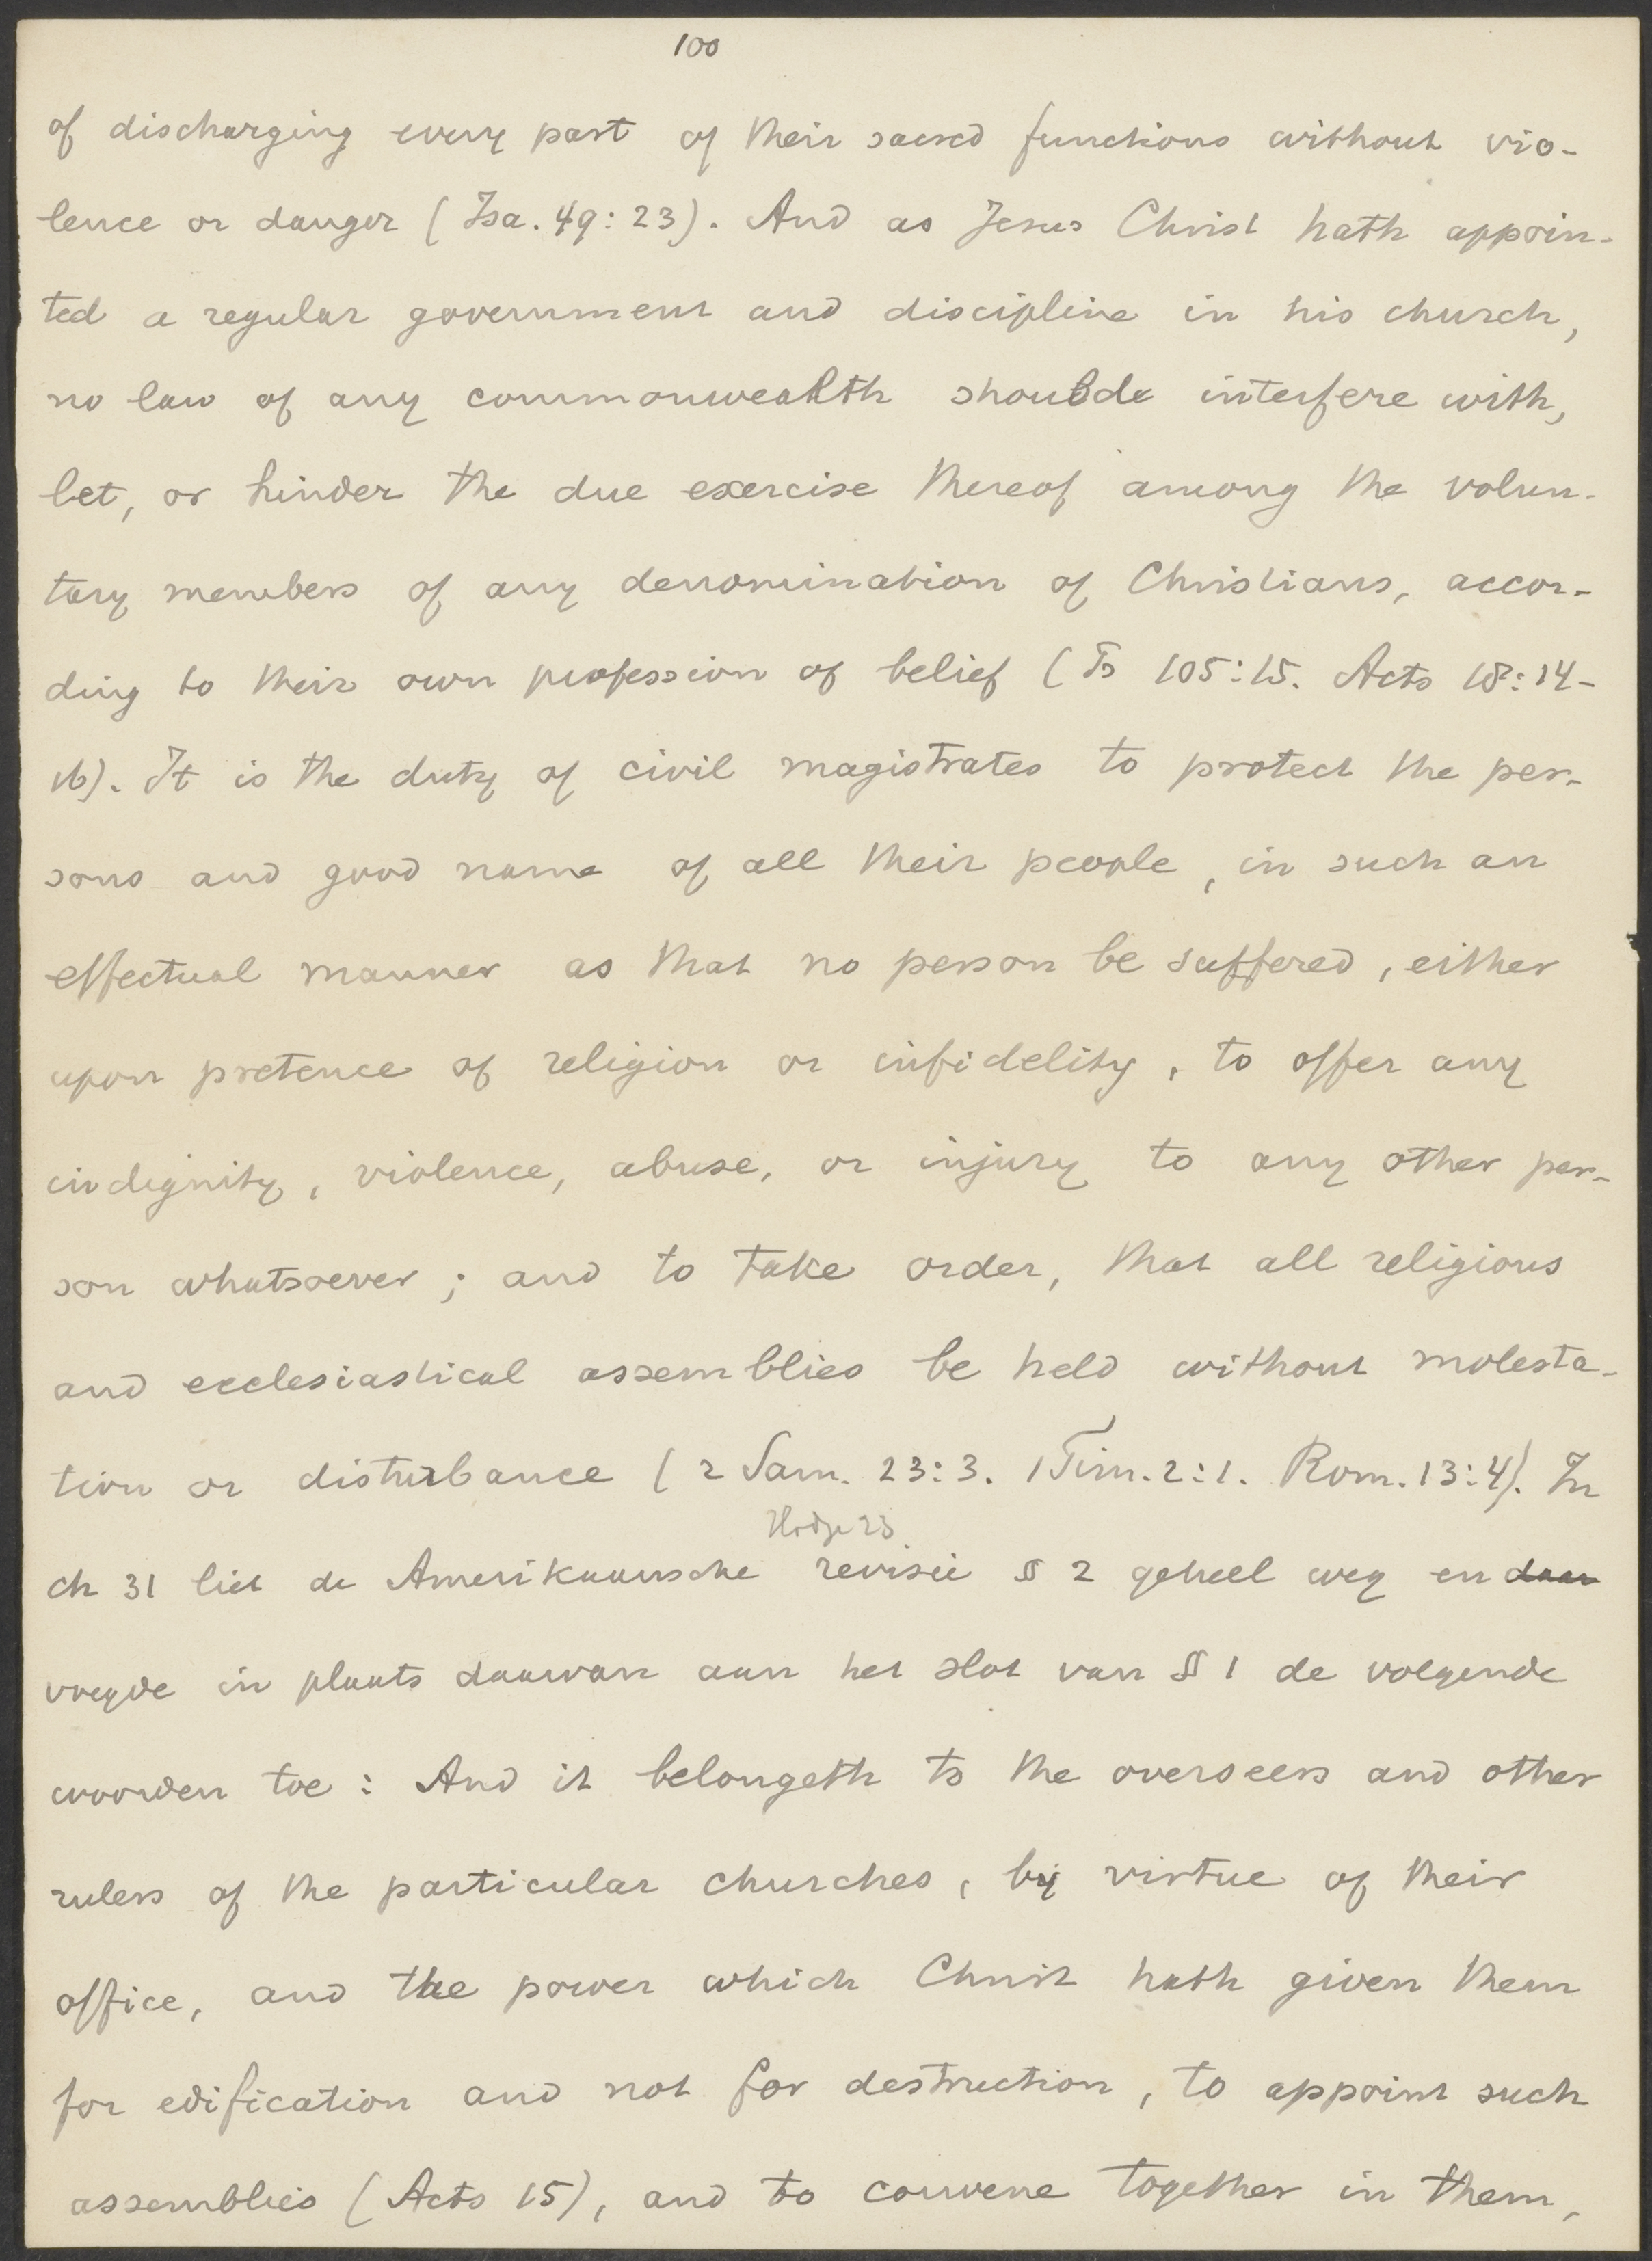 100
of discharging every part of their sacred functions without vio-
lence or danger (Isa. 49:23). And as Jesus Christ hath appoin-
ted a regular government and discipline in his church,
no law of any commonwealth should interfere with,
let, or hinder the due exercise thereof among the volun-
tary members of any denomination of Christians, accor-
ding to their own profession of belief (Ps 105:15. Acts 18:14-
16). It is the duty of civil magistrates to protect the per-
sons and good name of all their people, in such an
effectual manner as that no person be suffered, either
upon pretence of religion or infidelity, to offer any
indignity, violence, abuse, or injury to any other per-
son whatsoever; and to take order, that all religious
and ecclesiastical assemblies be held without molesta-
tion or disturbance (2 Sam. 23:3. 1 Tim. 2:1. Rom. 13:4). In
Hodge 23
ch 31 liet de Amerikaansche revisie § 2 geheel weg en daar
voegde in plaats daarvan aan het slot van § 1 de volgende
woorden toe: And it belongeth to the overseers and other
rulers of the particular churches, by virtue of their
office, and the power which Christ hath given them
for edification and not for destruction, to appoint such
assemblies (Acts 15), and to convene together in them,